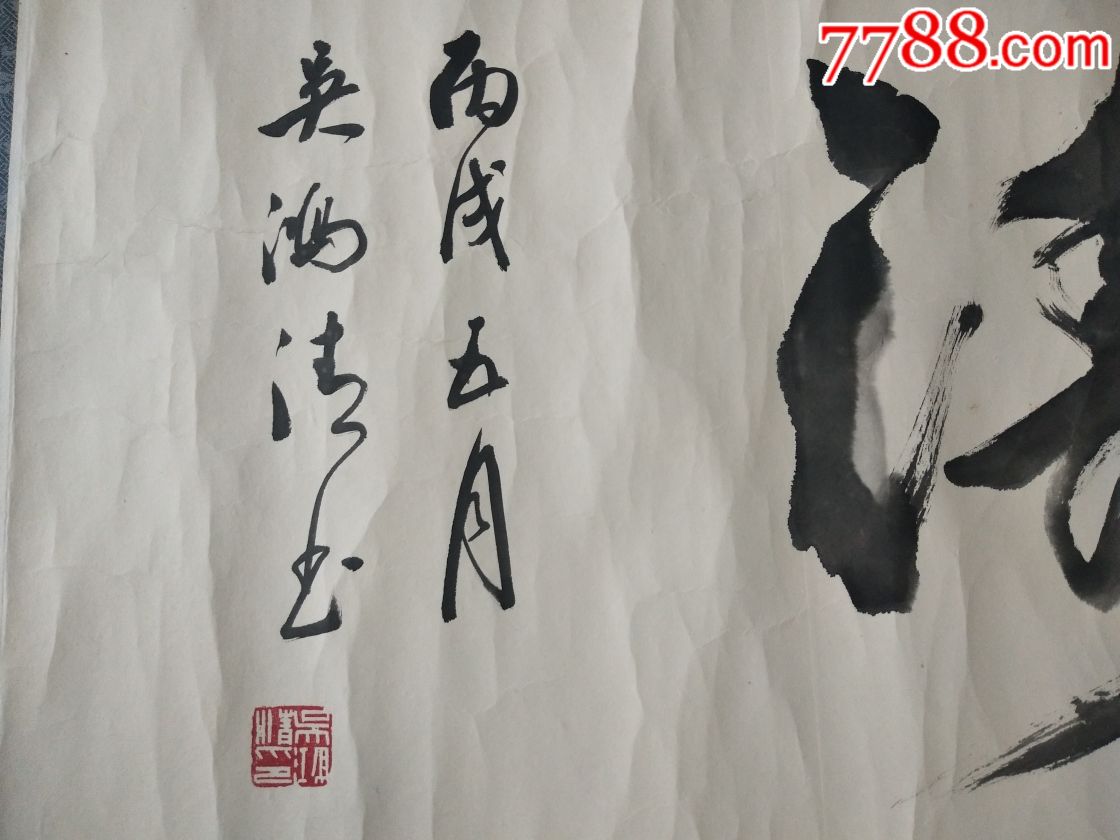 7788.com
丙戌五月
吴鸿清书
吴鸿清印